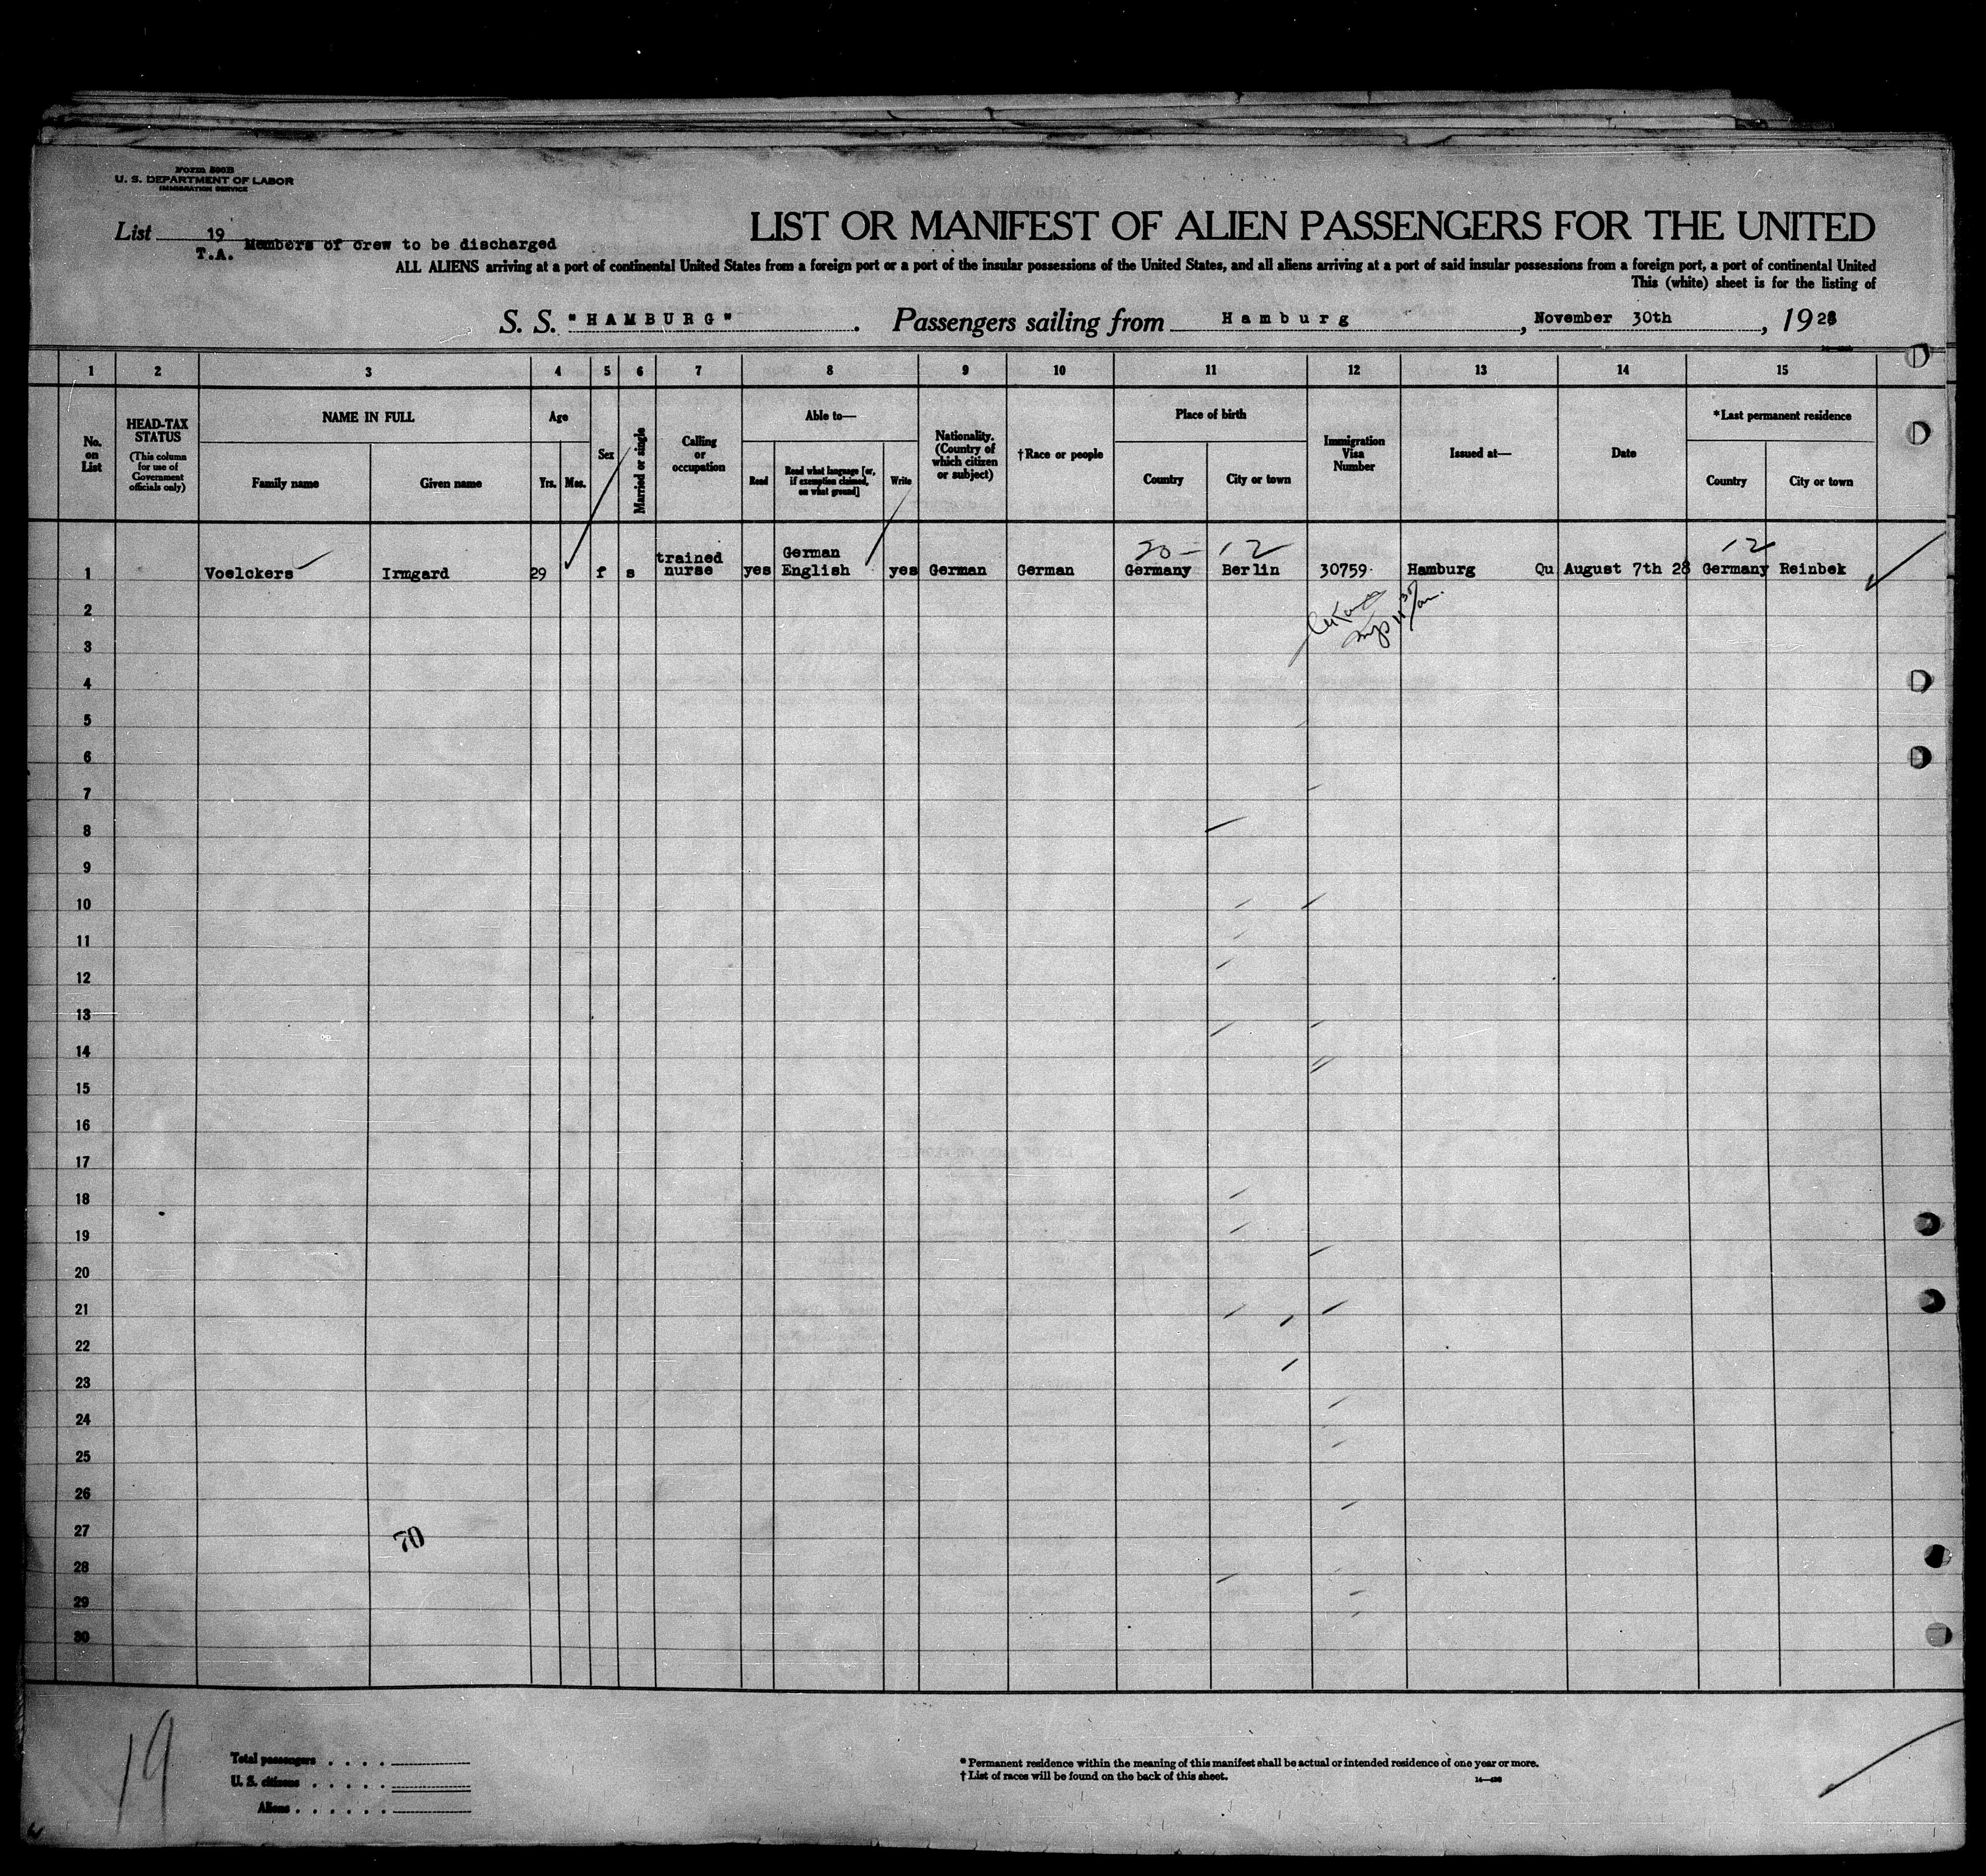 Form 500B
U. S. DEPARTMENT OF LABOR
IMMIGRATION SERVICE
List 19
T.A. Members of crew to be discharged
LIST OR MANIFEST OF ALIEN PASSENGERS FOR THE UNITED
ALL ALIENS arriving at a port of continental United States from a foreign port or a port of the insular possessions of the United States, and all aliens arriving at a port of said insular possessions from a foreign port, a port of continental United
This (white) sheet is for the listing of
S. S. "HAMBURG" . Passengers sailing from Hamburg , November 30th , 1928
1 2 3 4 5 6 7 8 9 10 11 12 13 14 15
No. on List
HEAD-TAX STATUS
(This column for use of Government officials only)
NAME IN FULL
Family name Given name
Age
Yrs. Mos.
Sex
Married or single
Calling or occupation
Able to—
Read
Read what language [or, if exemption claimed, on what ground]
Write
Nationality. (Country of which citizen or subject)
†Race or people
Place of birth
Country City or town
Immigration Visa Number
Issued at—
Date
*Last permanent residence
Country City or town
20 – 12 12
trained German
1 Voelckers Irmgard 29 f s nurse yes English yes German German Germany Berlin 30759 Hamburg Qu August 7th 28 Germany Reinbek
2
3
4
5
6
7
8
9
10
11
12
13
14
15
16
17
18
19
20
21
22
23
24
25
26
27
70
28
29
30
19
Total passengers . . . .
U. S. citizens . . . . .
Aliens . . . . . .
* Permanent residence within the meaning of this manifest shall be actual or intended residence of one year or more.
† List of races will be found on the back of this sheet.